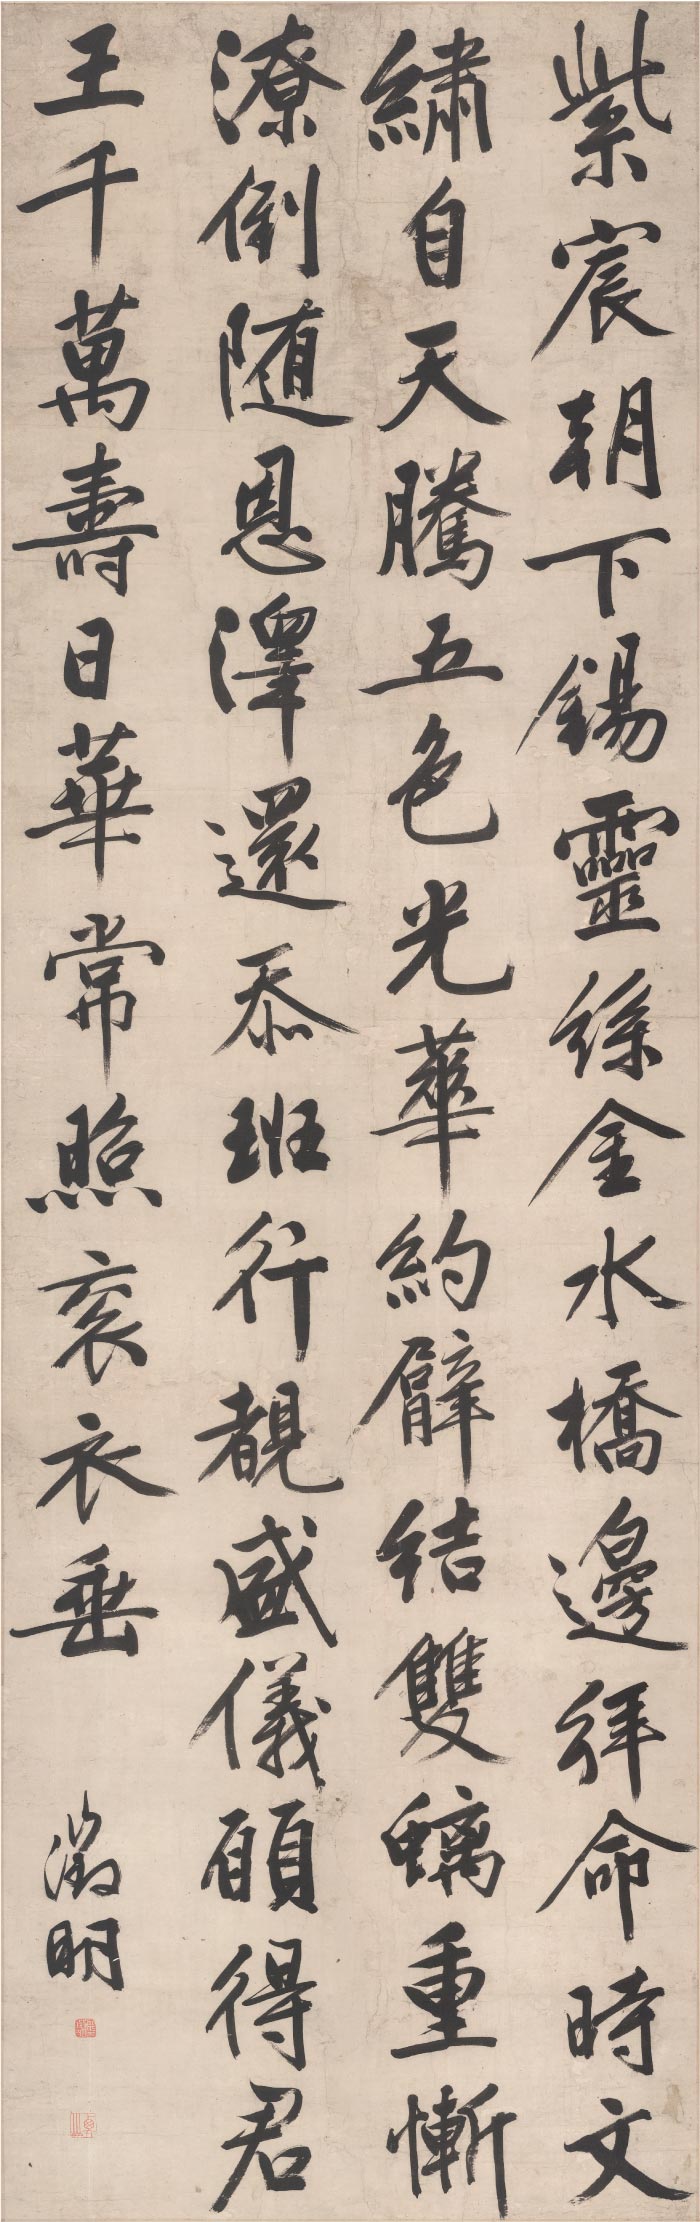 紫宸朝下錫靈絲金水橋邊拜命時文
繡自天騰五色光華約臂結雙螭重慚
潦倒随恩澤還忝班行覩盛儀願得君
王千萬壽日華常照衮衣垂
徵明